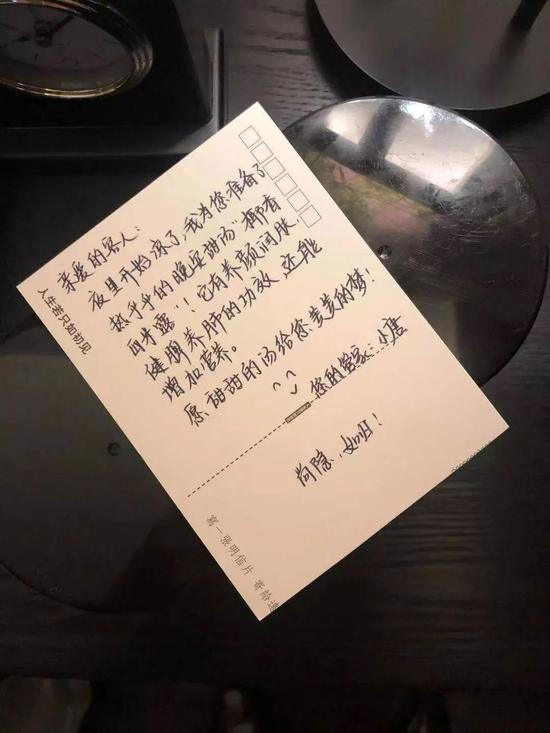 亲爱的客人:
夜里开始凉了,我为您准备了
热乎乎的晚安甜汤“椰香
西米露”!它有养颜润肤,
健脾养肺的功效 还能
增加营养。
愿甜甜的汤给您美美的梦!
您的管家:小唐
尚隐·如旧!
人生若只如初见
寫一張明信片 寄給